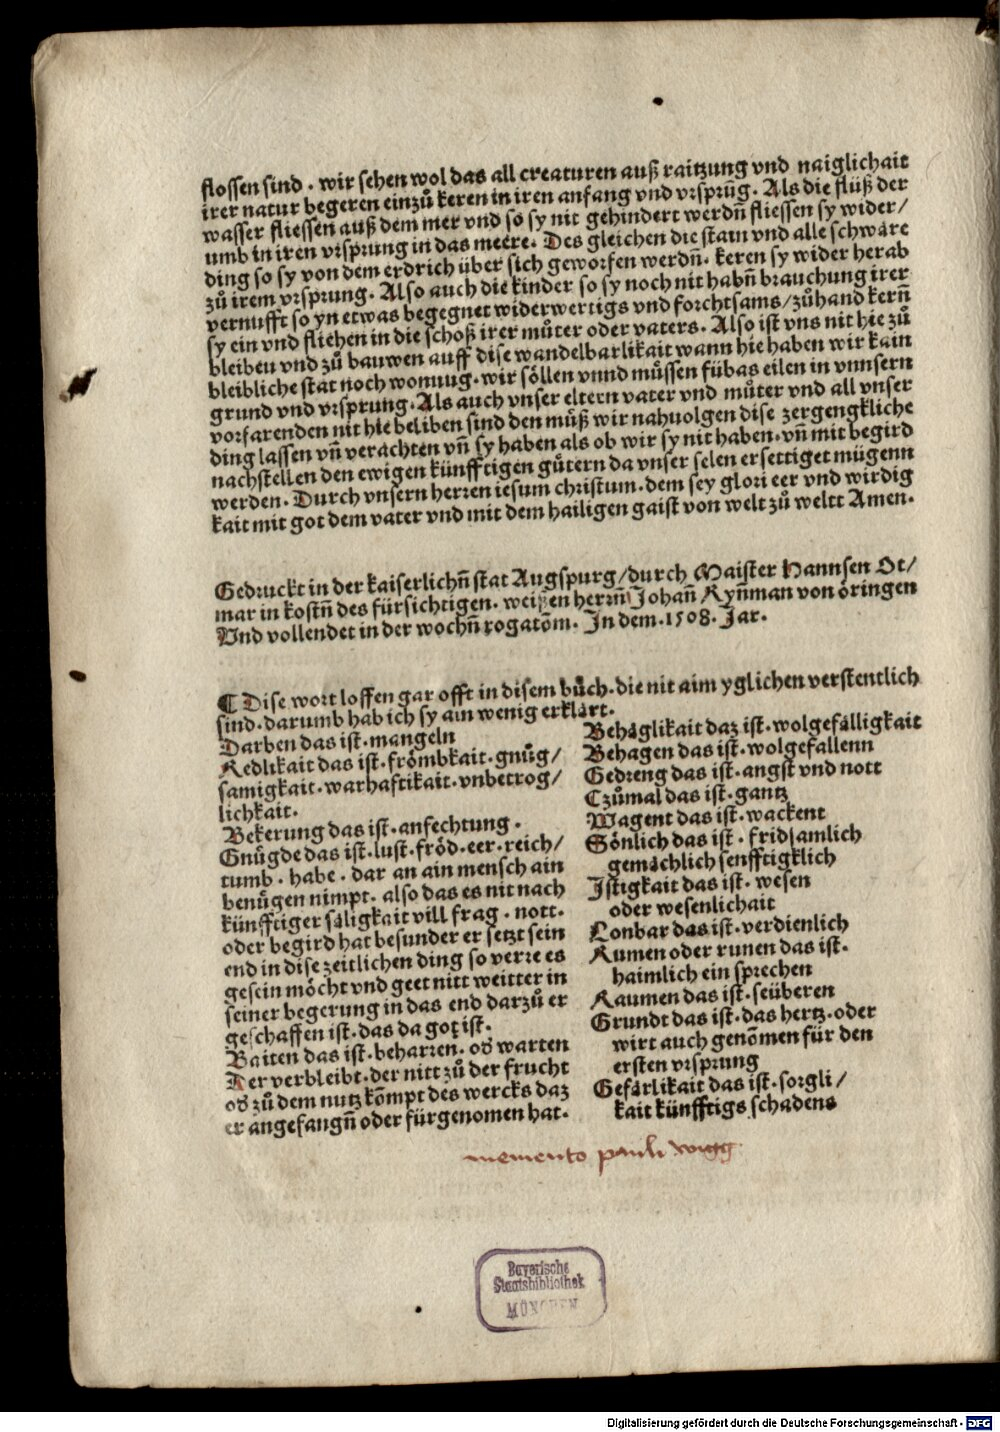 flossen sind . wir sehen wol das all creaturen auß raitzung vnd naiglichait
irer natur begeren einzů keren in iren anfang vnd vrsprūg. Als die flüß der
wasser fliessen auß dem mer vnd so sy nit gehindert werdn̄ fliessen sy wider/
umb in iren vrsprung in das meere. Des gleichen die stain vnd alle schwäre
ding so sy von dem erdrich über sich geworfen werdn̄. keren sy wider herab
zů irem vrsprung. Also auch die kinder so sy noch nit habn̄ brauchung irer
vernufft so yn etwas begegnet widerwertigs vnd forchtsams/zůhand kern̄
sy ein vnd fliehen in die schoß irer můter oder vaters. Also ist vns nit hie zů
bleiben vnd zů bauwen auff dise wandelbarlikait wann hie haben wir kain
bleibliche stat noch wonnug. wir söllen vnnd müssen fübas eilen in vnnsern
grund vnd vrsprung. Als auch vnser eltern vater vnd můter vnd all vnser
vorfarenden nit hie beliben sind den můß wir nahuolgen dise zergengkliche
ding lassen vn̄ verachten vn̄ sy haben als ob wir sy nit haben. vn̄ mit begird
nachstellen den ewigen künfftigen gůtern da vnser selen ersettiget mügenn
werden. Durch vnsern herren iesum christum. dem sey glori eer vnd wirdig
kait mit got dem vater vnd mit dem hailigen gaist von welt zů weltt Amen.
Gedruckt in der kaiserlichn̄ stat Augspurg/durch Maister Hannsen Ot/
mar in kostn̄ des fürsichtigen. weißen herrn̄ Johan̄ Ryn̄man von öringen
Vnd vollendet in der wochn̄ rogatōm. In dem. 1508. Jar.
¶ Dise wort loffen gar offt in disem bůch. die nit aim yglichen verstentlich
sind. darumb hab ich sy ain wenig erklärt.
Darben das ist. mangeln
Redlikait das ist. frömbkait. gnůg/
samigkait. warhaftikait. vnbetrog/
lichkait.
Bekerung das ist. anfechtung.
Gnůgde das ist. lust. fröd. eer. reich/
tumb . habe . dar an ain mensch ain
benůgen nimpt. also das es nit nach
künfftiger säligkait vill frag . nott.
oder begird hat besunder er setzt sein
end in dise zeitlichen ding so verre es
gesein möcht vnd geet nitt weitter in
seiner begerung in das end darzů er
geschaffen ist. das da got ist.
Baiten das ist. beharren. od̄ warten
Der verbleibt. der nitt zů der frucht
od̄ zů dem nutz kōmpt des wercks daz
er angefangn̄ oder fürgenomen hat.
Behäglikait daz ist. wolgefälligkait
Behagen das ist. wolgefallenn
Gedreng das ist. angst vnd nott
Czůmal das ist. gantz
Wagent das ist. wackent
Sönlich das ist . fridsamlich
gemächlich senfftigklich
Istigkait das ist. wesen
oder wesenlichait
Lonbar das ist. verdienlich
Rumen oder runen das ist.
haimlich ein sprechen
Raumen das ist. seüberen
Grundt das ist. das hertz. oder
wirt auch genōmen für den
ersten vrsprung
Gefärlikait das ist. sorgli/
kait künfftigs schadens
memento pauli wigg
Bayerische
Staatsbibliothek
MÜNCHEN
Digitalisierung gefördert durch die Deutsche Forschungsgemeinschaft - DFG